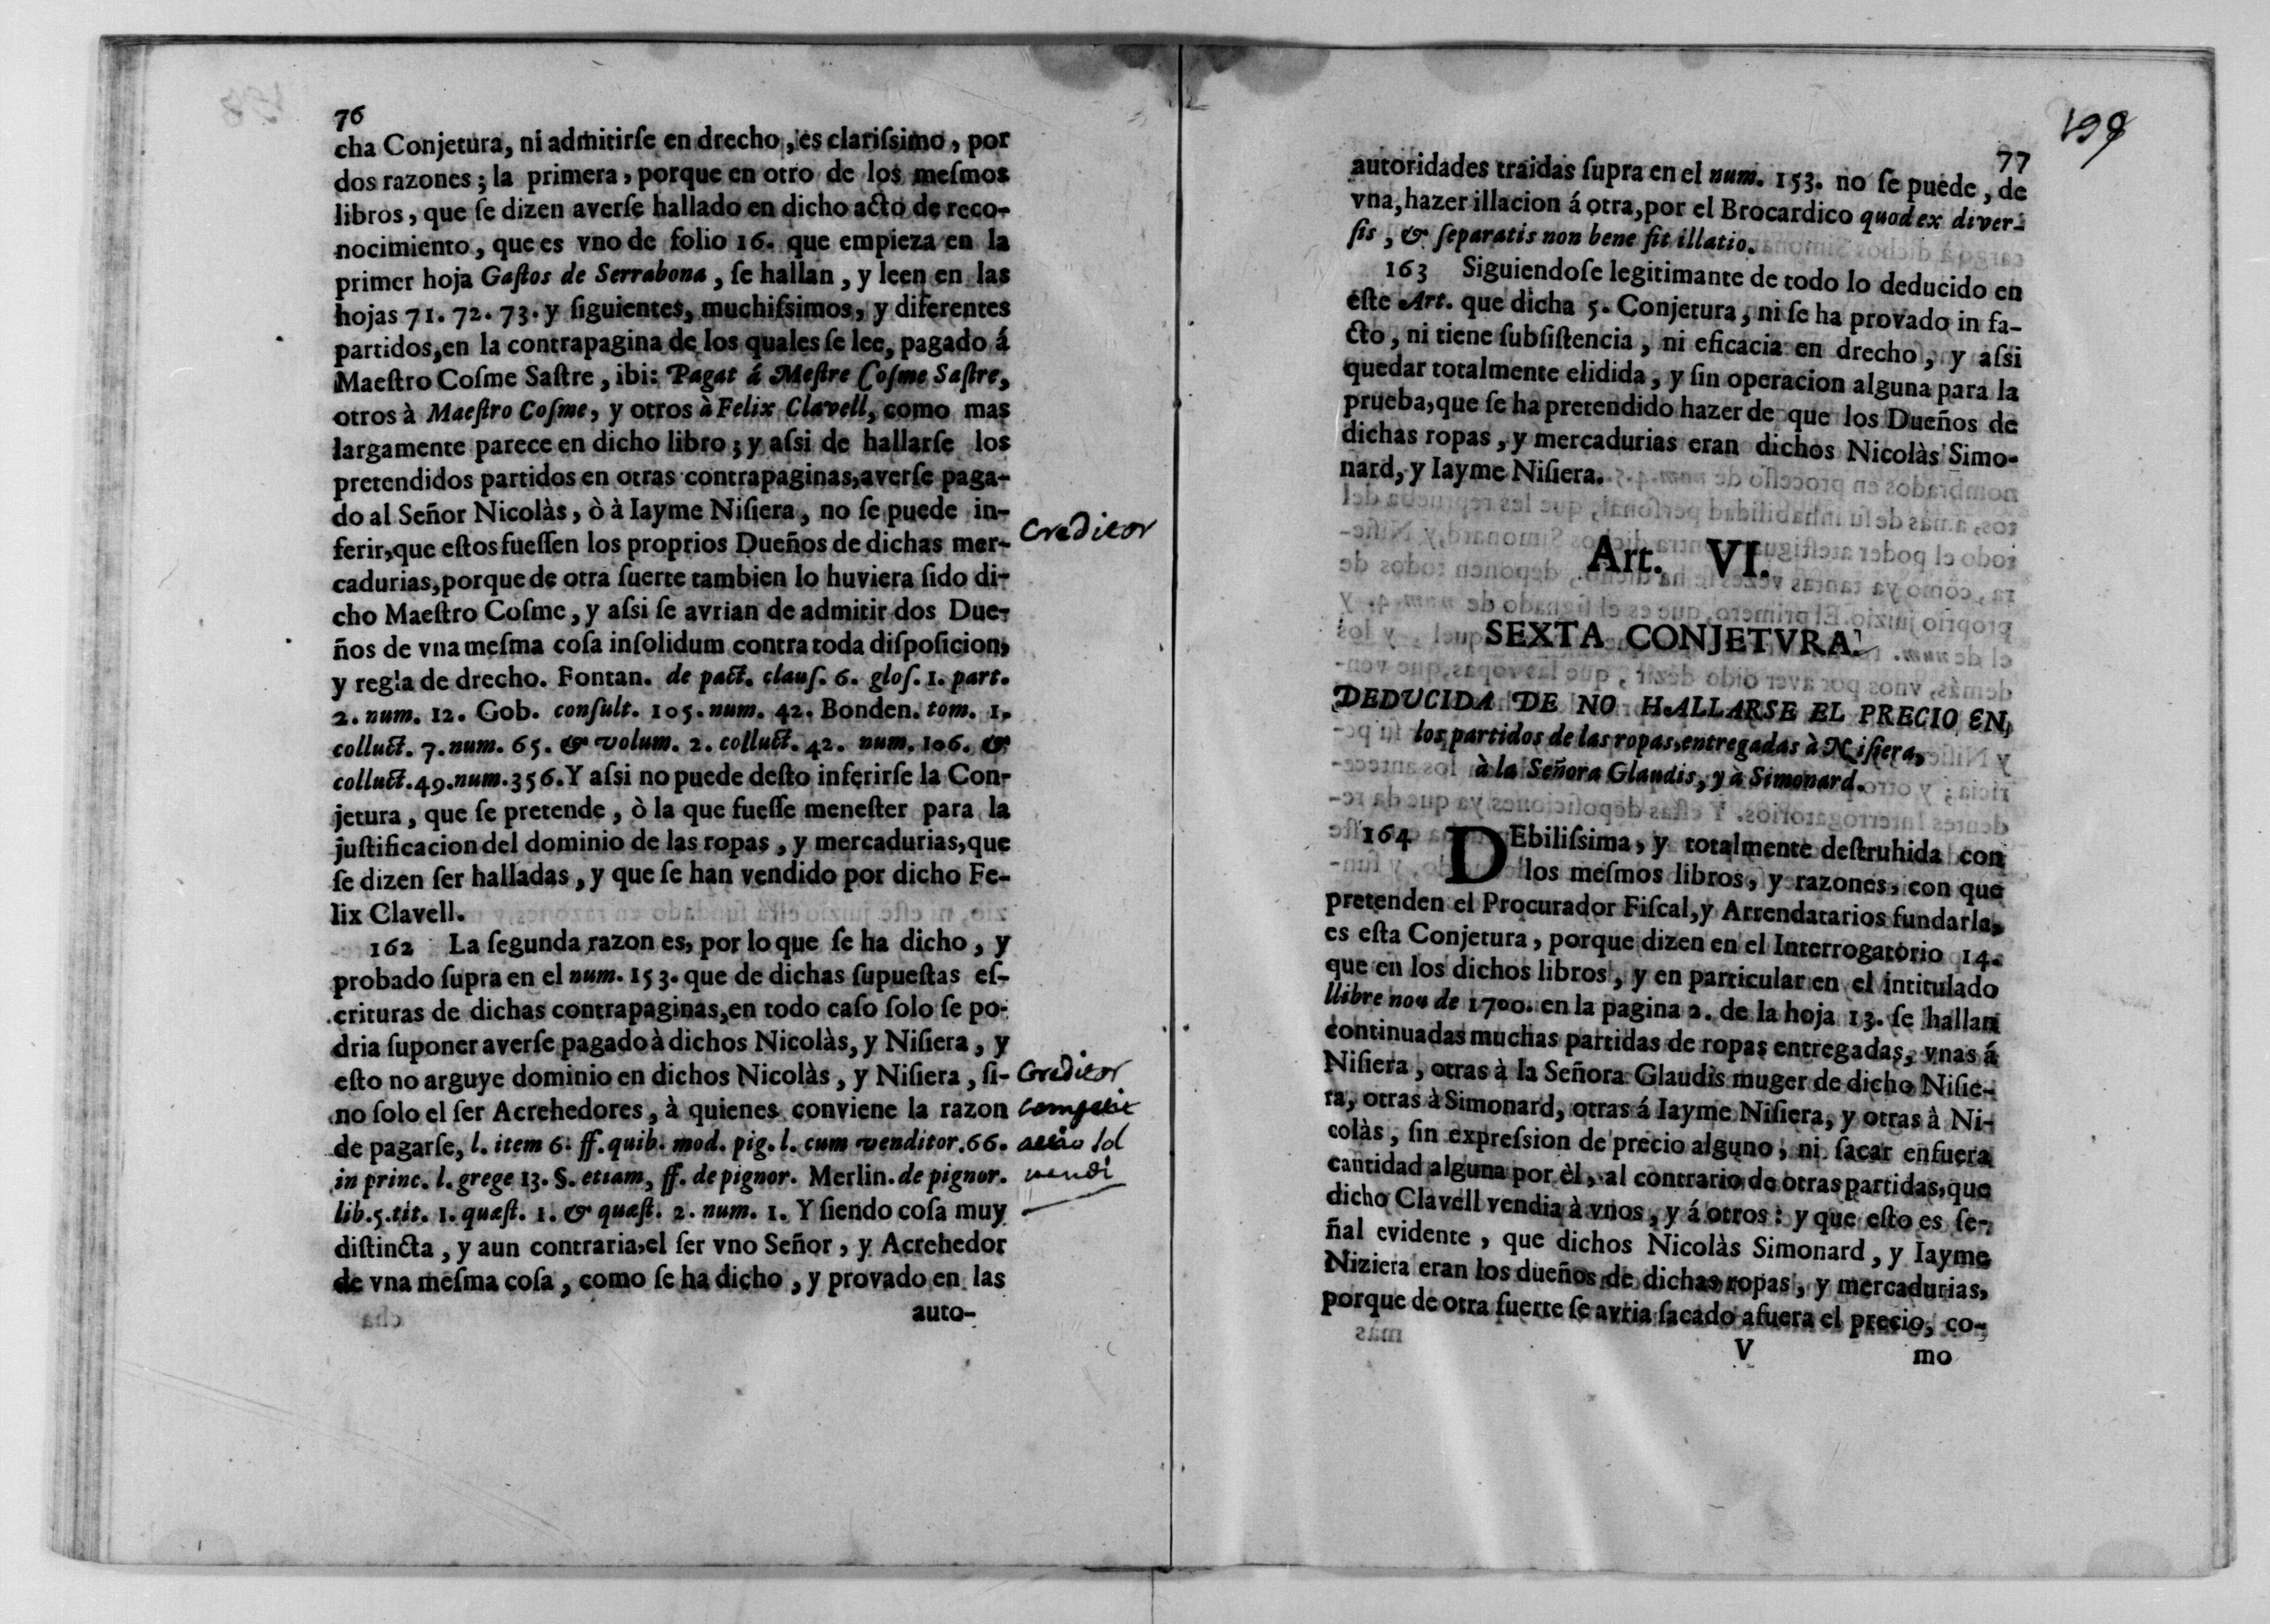 76
cha Conjetura, ni admitirſe en drecho, es clariſsimo, por
dos razones; la primera, porque en otro de los meſmos
libros, que ſe dizen averſe hallado en dicho acto de reco-
nocimiento, que es vno de folio 16. que empieza en la
primer hoja Gaſtos de Serrabona, ſe hallan, y leen en las
hojas 71. 72. 73. y ſiguientes, muchiſsimos, y diferentes
partidos, en la contrapagina de los quales ſe lee, pagado á
Maeſtro Coſme Saſtre, ibi: Pagat á Meſtre Coſme Saſtre,
otros à Maeſtro Coſme, y otros à Felix Clavell, como mas
largamente parece en dicho libro; y aſsi de hallarſe los
pretendidos partidos en otras contrapaginas, averſe paga-
do al Señor Nicolàs, ò à Iayme Niſiera, no ſe puede in-
ferir, que eſtos fueſſen los proprios Dueños de dichas mer-
cadurias, porque de otra ſuerte tambien lo huviera ſido di-
cho Maeſtro Coſme, y aſsi ſe avrian de admitir dos Due-
ños de vna meſma coſa inſolidum contra toda diſpoſicion,
y regla de drecho. Fontan. de pact. clauſ. 6. gloſ. 1. part.
2. num. 12. Gob. conſult. 105. num. 42. Bonden. tom. 1.
colluct. 7. num. 65. & volum. 2. colluct. 42. num. 106. &
colluct. 49. num. 356. Y aſsi no puede deſto inferirſe la Con-
jetura, que ſe pretende, ò la que fueſſe meneſter para la
juſtificacion del dominio de las ropas, y mercadurias, que
ſe dizen ſer halladas, y que ſe han vendido por dicho Fe-
lix Clavell.
162 La ſegunda razon es, por lo que ſe ha dicho, y
probado ſupra en el num. 153. que de dichas ſupueſtas eſ-
crituras de dichas contrapaginas, en todo caſo ſolo ſe po-
dria ſuponer averſe pagado à dichos Nicolàs, y Niſiera, y
eſto no arguye dominio en dichos Nicolàs, y Niſiera, ſi-
no ſolo el ſer Acrehedores, à quienes conviene la razon
de pagarſe, l. item 6. ff. quib. mod. pig. l. cum venditor. 66.
in princ. l. grege 13. §. etiam, ff. de pignor. Merlin. de pignor.
lib. 5. tit. 1. quæſt. 1. & quæſt. 2. num. 1. Y ſiendo coſa muy
diſtincta, y aun contraria, el ſer vno Señor, y Acrehedor
de vna meſma coſa, como ſe ha dicho, y provado en las
auto-
Creditor
Creditor
competit
77
autoridades traidas ſupra en el num. 153. no ſe puede, de
vna, hazer illacion á otra, por el Brocardico quod ex diver-
ſis, & ſeparatis non bene fit illatio.
163 Siguiendoſe legitimante de todo lo deducido en
eſte Art. que dicha 5. Conjetura, ni ſe ha provado in fa-
cto, ni tiene ſubſiſtencia, ni eficacia en drecho, y aſsi
quedar totalmente elidida, y ſin operacion alguna para la
prueba, que ſe ha pretendido hazer de que los Dueños de
dichas ropas, y mercadurias eran dichos Nicolàs Simo-
nard, y Iayme Niſiera.
Art. VI.
SEXTA CONJETVRA.
DEDUCIDA DE NO HALLARSE EL PRECIO EN
los partidos de las ropas, entregadas à Niſiera,
à la Señora Glaudis, y à Simonard.
164 DEbiliſsima, y totalmente deſtruhida con
los meſmos libros, y razones, con que
pretenden el Procurador Fiſcal, y Arrendatarios fundarla,
es eſta Conjetura, porque dizen en el Interrogatorio 14.
que en los dichos libros, y en particular en el intitulado
llibre nou de 1700. en la pagina 2. de la hoja 13. ſe hallan
continuadas muchas partidas de ropas entregadas, vnas á
Niſiera, otras à la Señora Glaudis muger de dicho Niſie-
ra, otras à Simonard, otras á Iayme Niſiera, y otras à Ni-
colàs, ſin expreſsion de precio alguno, ni ſacar enfuera
cantidad alguna por èl, al contrario de otras partidas, que
dicho Clavell vendia à vnos, y á otros: y que eſto es ſe-
ñal evidente, que dichos Nicolàs Simonard, y Iayme
Niziera eran los dueños de dichas ropas, y mercadurias,
porque de otra ſuerte ſe avria ſacado afuera el precio, co-
V
mo